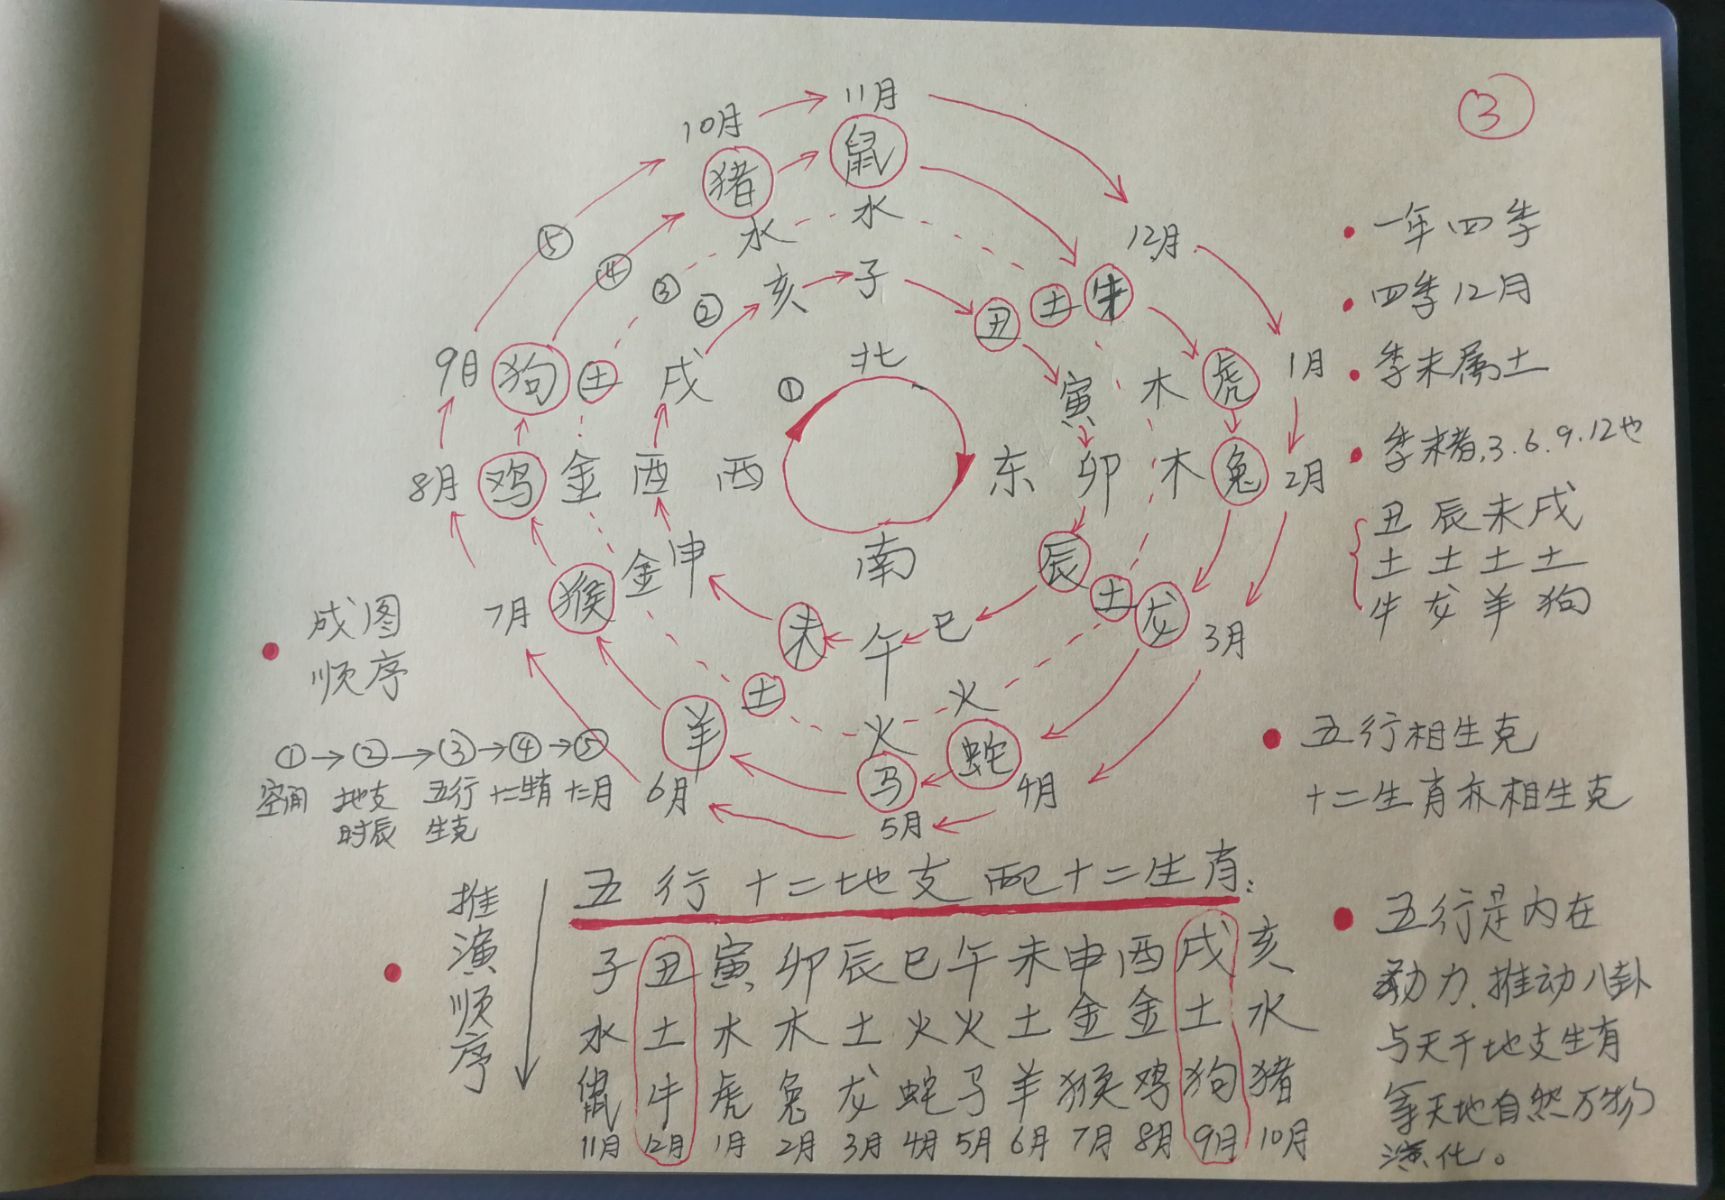 ③
10月 11月
猪 鼠
12月
水 水
⑤ ④ ③ ②
亥 子
丑 土 牛
9月 狗 土 戌 ① 北 寅 木 虎 1月
8月 鸡 金 酉 西 东 卯 木 兔 2月
南
7月 猴 金 申 辰 土 龙 3月
未 午 巳
土 火 火
羊 马 蛇
6月 5月 4月
• 一年四季
• 四季12月
• 季末属土
• 季末者,3.6.9.12也
丑 辰 未 戌
土 土 土 土
牛 龙 羊 狗
• 成图
顺序
①→②→③→④→⑤
空间 地支 五行 十二生肖 十二月
时辰 生克
• 五行相生克
十二生肖亦相生克
• 推演顺序
五行十二地支配十二生肖:
子 丑 寅 卯 辰 巳 午 未 申 酉 戌 亥
水 土 木 木 土 火 火 土 金 金 土 水
鼠 牛 虎 兔 龙 蛇 马 羊 猴 鸡 狗 猪
11月 12月 1月 2月 3月 4月 5月 6月 7月 8月 9月 10月
• 五行是内在
动力,推动八卦
与天干地支生肖
等天地自然万物
演化。